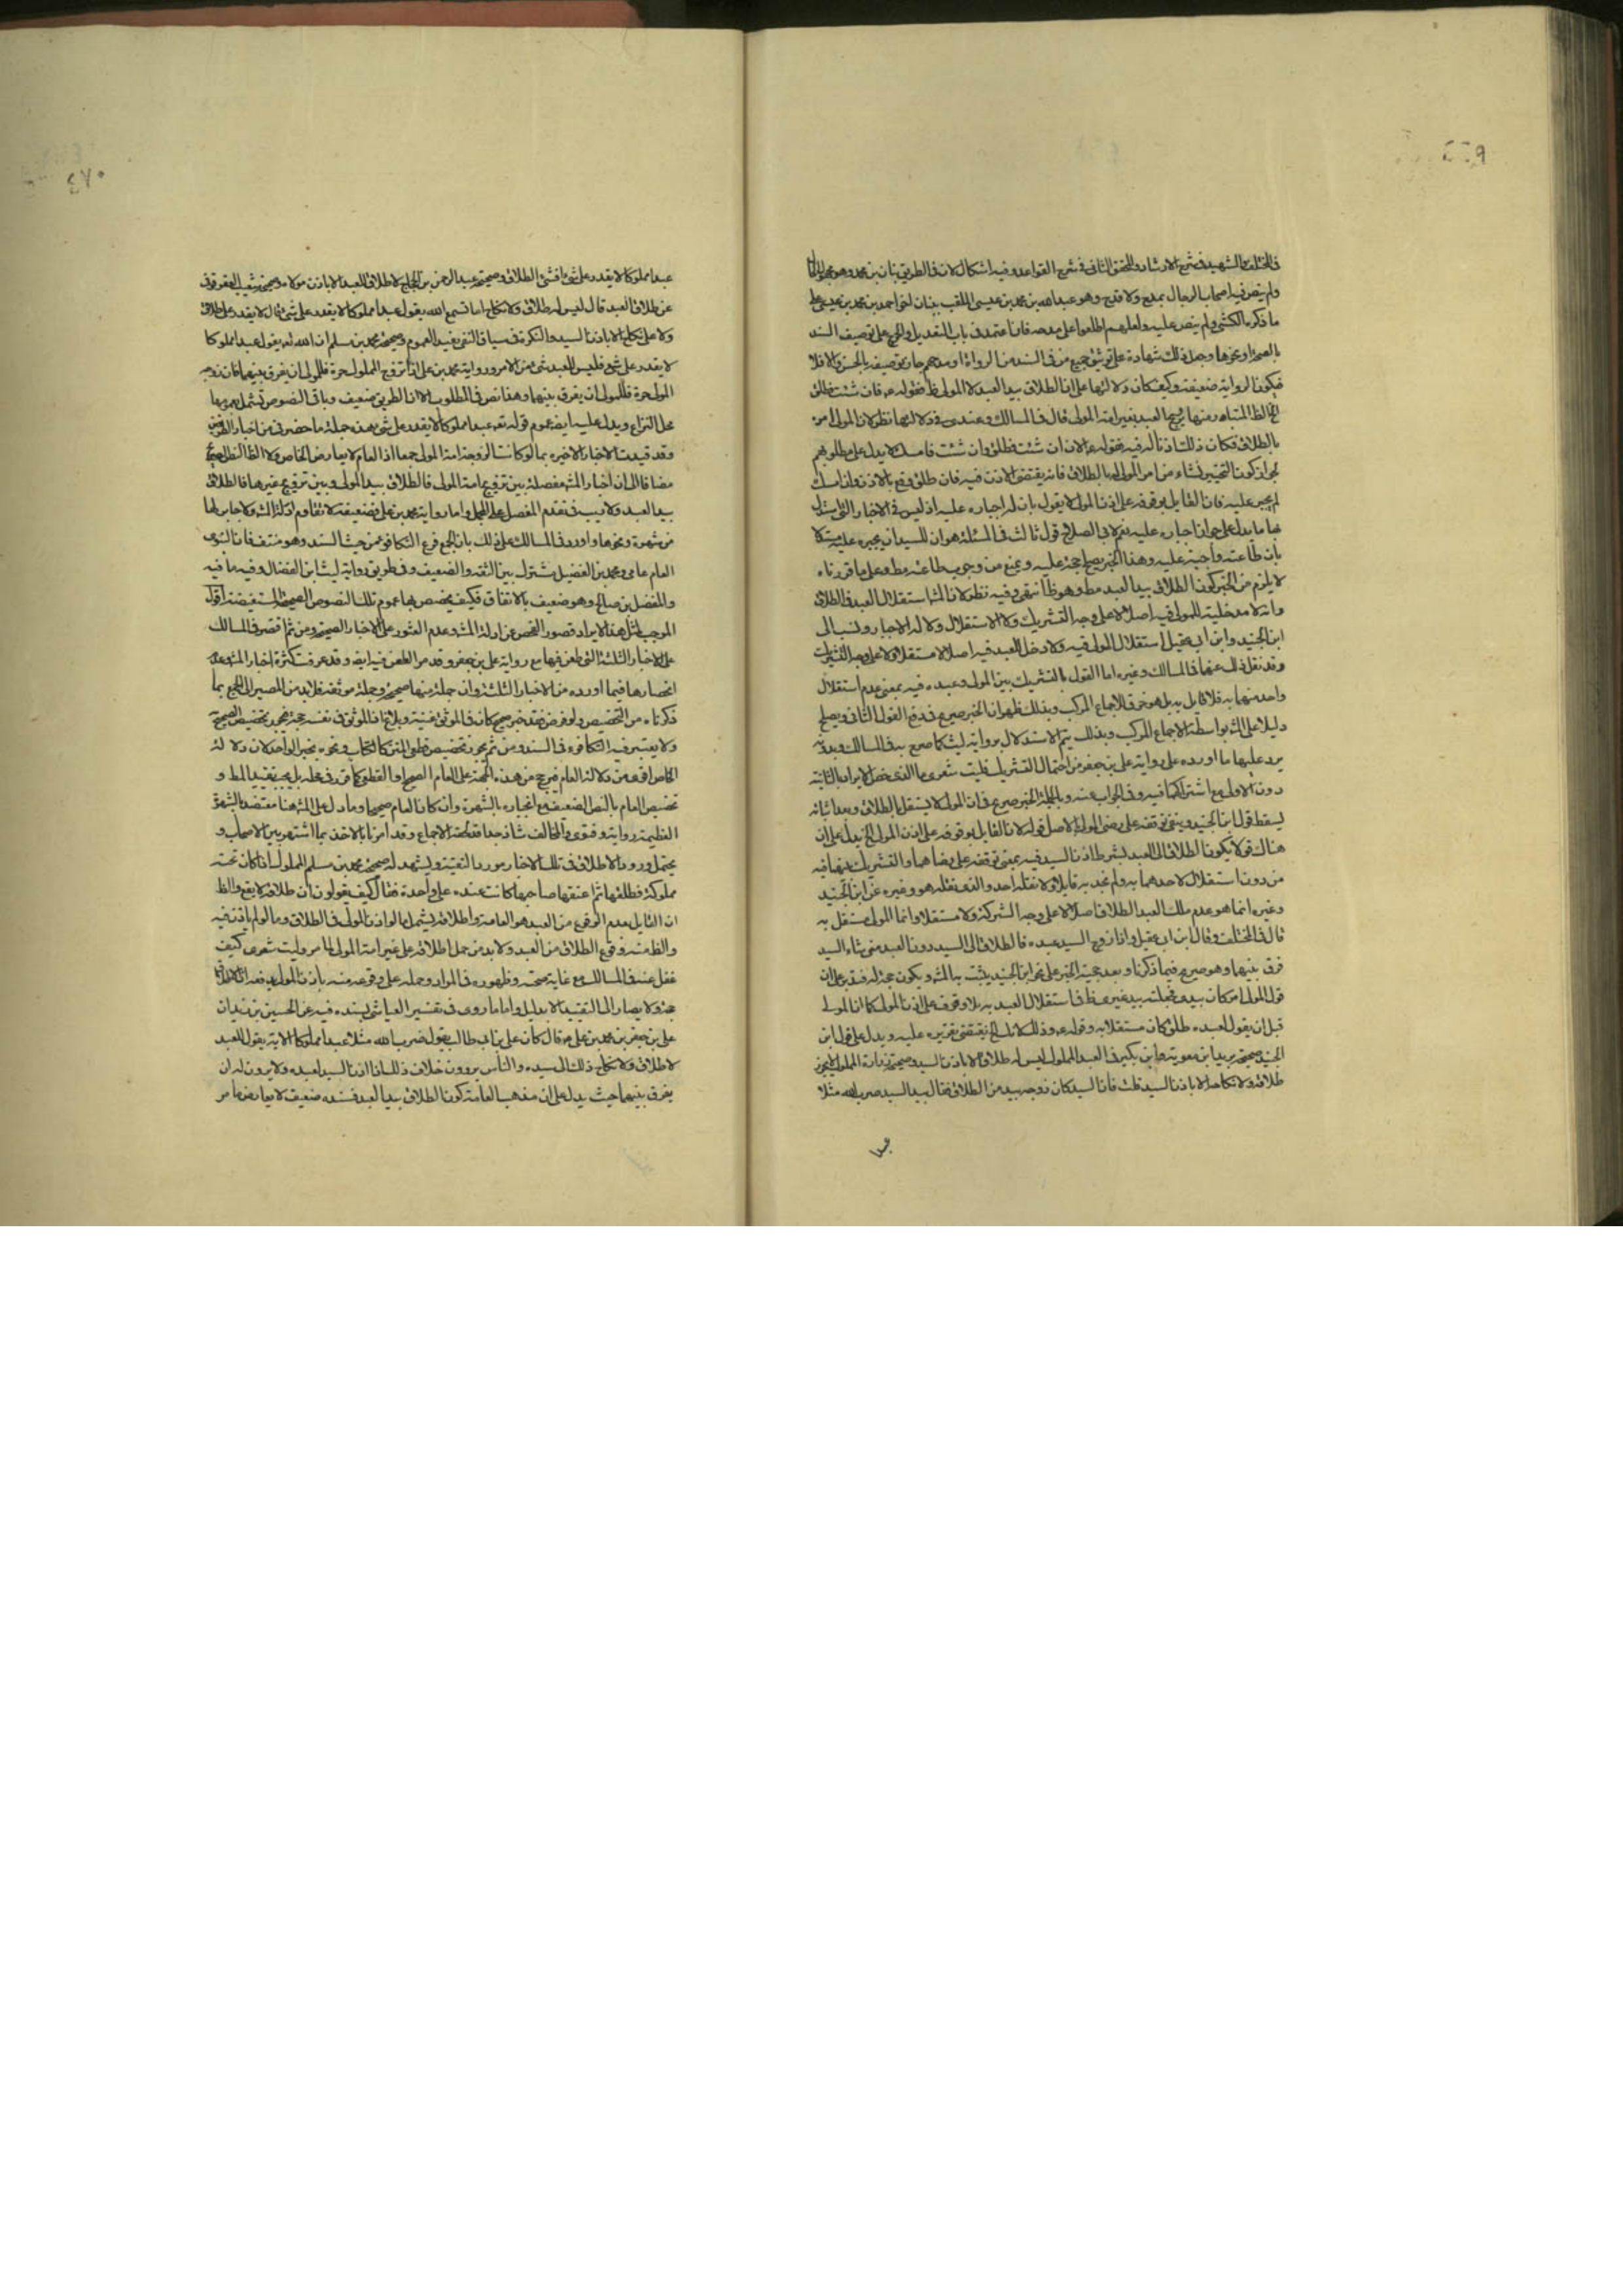 في المختلف والشهيد في شرح الارشاد والمحقق الثاني في شرح القواعد وفيه اشكال لان في الطريق بنان بن محمد وهو مجهول
ولم ينص فيه اصحاب الرجال بمدح ولا قدح وهو عبدالله بن محمد بن عيسى الملقب ببنان اخو احمد بن محمد بن عيسى على
ما ذكره الكشي ولم ينص عليه ولعلهم اطلعوا على مدحه فانا نعتمد في باب التعديل والجرح على توصيف السند
بالصحة او نحوها وجعل ذلك شهادة على توثيق جميع من في السند من الرواة او مدحهم جاز توصيفه بالحسن والا فلا
فيكون الرواية ضعيفة وكيف كان ودلالتها على ان الطلاق بيد العبد لا المولى فقوله فان شئت فطلق
بالطلاق فكان ذلك اذنا له فيه فقوله الان ان شئت فطلق وان شئت فامسك لا يدل على مطلوبهم
لجواز كون التخيير نشاء من امر المولى له بالطلاق فانه يقتضي الاذن فيه فان طلق وقع بالاذن وان امسك
لم يجبر عليه فان القايل بوقوفه على اذن المولى لا يقول بان له اجباره عليه اذ ليس في الاخبار التي استدل
بها ما يدل على جواز اجباره عليه نعم لابي الصلاح قول ثالث في المسئلة هو ان للسيد ان يجبره عليه
بان طاعته واجبة عليه وهذا الخبر يصلح حجة عليه ويمنع من وجوب طاعته مط وعلى ما قررناه
لا يلزم من الخبر كون الطلاق بيد العبد مط وهو ظ انتهى وفيه نظر لان استقلال العبد في الطلاق
وانه لا مدخلية للمولى فيه اصلا لا على وجه التشريك ولا الاستقلال ولا له الاجبار ونسب الى
ابن الجنيد وابن ابي عقيل استقلال المولى فيه ولا دخل للعبد فيه اصلا لا مستقلا ولا على وجه التشريك
وقد نقل ذلك عنهما في المسالك وغيره اما القول بالتشريك بين المولى وعبده فيه بمعنى عدم استقلال
واحد منهما به فلا قايل به بل هو خرق للاجماع المركب وبذلك ظهر ان الخبر صريح في دفع القول الثاني ويصلح
دليلا على بواسطة الاجماع المركب وبذلك يتم الاستدلال برواية ليث كما صرح به في المسالك
يرد عليها ما اورده على رواية علي بن جعفر من احتمال التشريك فليت شعري ما الذي خص الايراد بالثانية
دون الاولى مع اشتراكهما فيه وفي الجواب عنه وبالجملة الخبر صريح في ان المولى لا يستقل بالطلاق وبعد اثباته
يسقط قول ابن الجنيد ويبقى توقفه على رضى المولى الاصل قوله لان القايل بوقوفه على اذن المولى الخ يدل على ان
هناك قولا بكون الطلاق الى العبد بشرط اذن السيد فيه بمعنى توقفه على رضاهما والتشريك بينهما فيه
من دون استقلال لاحدهما به ولم نجد به قايلا ولا نقله احد والذي نقله هو وغيره عن ابن الجنيد
وغيره انما هو عدم ملك العبد الطلاق اصلا لا على وجه الشركة ولا مستقلا وانما المولى مستقل به
قال في المختلف وقال ابن ابي عقيل واذا زوج السيد عبده فالطلاق الى السيد دون العبد متى شاء السيد
فرق بينهما وهو صريح فيما ذكرنا وبعد حجية الخبر على نحو ابن الجنيد يثبت به ويكون حجة له
قول المولى امر كان بيدي فجعلته بيد غيري ظ في استقلال العبد به بلا وقوف على اذن المولى كما ان المولى
قبل ان يقول لعبده طلق كان مستقلا به وقوله يقتضي تقريره عليه ويدل على قول ابن
الجنيد صحيحة بريد بن معوية وابن بكير في العبد المملوك ليس له طلاق الا باذن السيد وصحيحة زرارة المملوك لا يجوز
طلاقه ولا نكاحه الا باذن السيد قلت فان السيد كان زوجه بيد من الطلاق فقال بيد السيد ضرب الله مثلا
عبدا
٤٧٠
عبدا مملوكا لا يقدر على شئ افشئ الطلاق وصحيحة عبد الرحمن بن الحجاج لا طلاق للعبد الا باذن مولاه وصحيحة شعيب العقرقوفي
عن طلاق العبد قال ليس له طلاق ولا نكاح اما تسمع الله يقول عبدا مملوكا لا يقدر على شئ قال لا يقدر على طلاق
ولا على نكاح الا باذن السيد والنكرة في سياق النفي يفيد العموم وصحيحة محمد بن مسلم ان الله يقول عبدا مملوكا
لا يقدر على شئ فليس للعبد شئ من الامر ورواية محمد بن علي اذا تزوج المملوك حرة فللمولى ان يفرق بينهما فان زوجه
المولى حرة فللمولى ان يفرق بينهما وهذا نص في المطلوب الا ان الطريق ضعيف وباقي النصوص تشمل بعمومها
محل النزاع ويدل عليه ايضا عموم قوله تعه عبدا مملوكا لا يقدر على شئ بهذه جملة ما حضرني من اخبار الطرفين
وقد قيدت الاخبار الاخيرة بما لو كانت الزوجة امة المولى جمعا اذ العام لا يعارض الخاص ولا الظ النص
مضافا الى ان اخبار مفصلة بين تزويج امة المولى فالطلاق بيد المولى وبين تزويج غيرها فالطلاق
بيد العبد ولا ريب في تقدم المفصل على المجمل واما رواية محمد بن علي فضعيفة لا تقاوم ادلة ولا جابر لها
من شهرة ونحوها واورد في المسالك على ذلك بان الجمع فرع التكافؤ من حيث السند وهو منتف فان
العام عامي ومحمد بن الفضيل مشترك بين الثقة والضعيف وفي طريق رواية ليث ابن الفضال وفيه ما فيه
والمفضل بن صالح وهو ضعيف بالاتفاق فكيف يخصص بها عموم تلك النصوص الصحيحة المستفيضة اقول
الموجب لمثل هذا الايراد قصور الفحص عن ادلة وعدم العثور على الاخبار الصحيحة ومن ثم اقتصر في المسالك
على الاخبار الثلثة التي طعن فيها مع رواية علي بن جعفر وقد مر الطعن فيه ايضا وقد عرفت كثرة اخبار وعدم
انحصارها فيما اورده من الاخبار الثلثة وان جملة منها صحيحة وجملة موثقة فلا بد من المصير الى الجمع بما
ذكرناه من التخصيص ولو فرض فقد خبر صحيح كان في الموثق غنية وبلاغ اذ الموثق في نفسه حجة فيجوز تخصيص الصحيح
ولا يعتبر فيه التكافؤ في السند ومن ثم يجوز تخصيص قطعي المتن كالكتاب ونحوه بخبر الواحد لان دلالة
الخاص اقوى من دلالة العام فيرجح من هذه الجهة على العام الصحيح او القطعي كما قرر في محله بل يجب تقييد المط و
تخصيص العام بالنص الضعيف مع انجباره بالشهرة وان كان العام صحيحا وما دل على هنا معتضد بالشهرة
العظيمة رواية وفتوى والمخالف شاذ وقد امرنا بالاخذ بما اشتهر بين الاصحاب و
يحتمل ورود الاطلاق في تلك الاخبار مورد التقية ويشهد له صحيحة محمد بن مسلم المملوك اذا كان تحته
مملوكة فطلقها ثم اعتقها صاحبها كانت عنده على واحدة فقال كيف يقولون ان طلاقه لا يقع والظ
ان القايل بعدم الوقوع من العبد هو العامة واطلاقه يشمل ما لو اذن المولى في الطلاق وما لو لم ياذن فيه
والظ منه وقوع الطلاق من العبد ولا بد من حمل اطلاقه على غير امة المولى لما مر وليت شعري كيف
غفل عنه في المسالك مع غاية صحته وظهوره في المراد وحمله على وقوعه منه باذن المولى
ولا يصار الى التقييد الا بدليل واما ما روى في تفسير العياشي بسنده فيه عن الحسين بن زيد بن
علي عن جعفر بن محمد بن علي ع قال كان علي بن ابي طالب يقول ضرب الله مثلا عبدا مملوكا الاية يقول للعبد
لا طلاق ولا نكاح ذلك الى سيده والناس يروون خلاف ذلك اذا اذن السيد لعبده ولا يرون له ان
يفرق بينهما حيث يدل على ان مذهب العامة كون الطلاق بيد العبد فسنده ضعيف لا يعارض ما مر